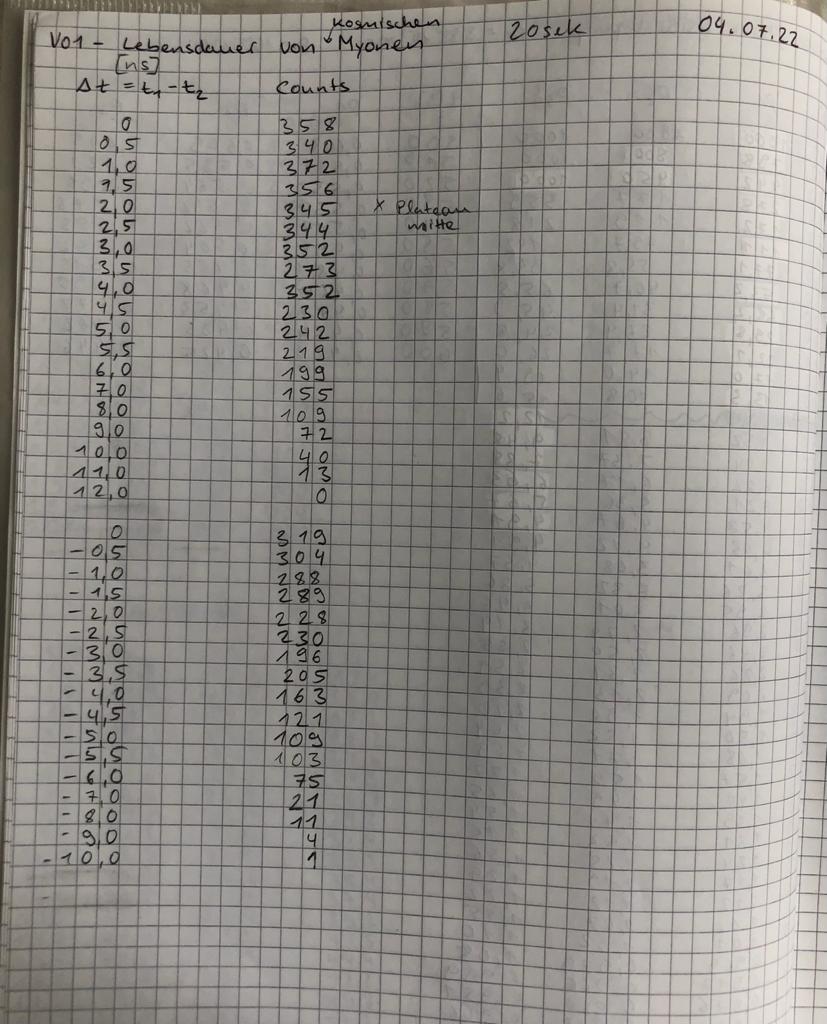 V01 - Lebensdauer von kosmischen Myonen 20sek 04.07.22
[ns]
Δt = t₁ - t₂ Counts
0 358
0,5 340
1,0 372
1,5 356
2,0 345 x Plateau
2,5 344 mitte
3,0 352
3,5 273
4,0 352
4,5 230
5,0 242
5,5 219
6,0 199
7,0 155
8,0 109
9,0 72
10,0 40
11,0 13
12,0 0
0 319
-0,5 304
-1,0 288
-1,5 289
-2,0 228
-2,5 230
-3,0 196
-3,5 205
-4,0 163
-4,5 121
-5,0 109
-5,5 103
-6,0 75
-7,0 21
-8,0 11
-9,0 4
-10,0 1